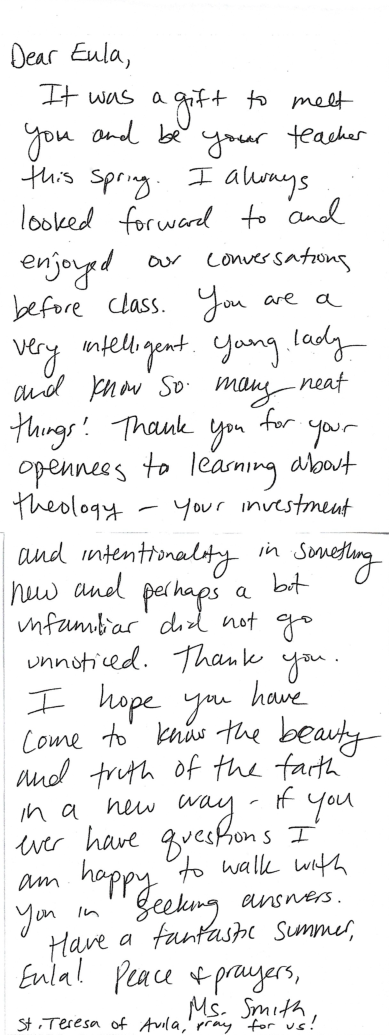 Dear Eula,
It was a gift to meet
you and be your teacher
this spring. I always
looked forward to and
enjoyed our conversations
before class. You are a
very intelligent young lady
and know so many neat
things! Thank you for your
openness to learning about
theology – your investment
and intentionality in something
new and perhaps a bit
unfamiliar did not go
unnoticed. Thank you.
I hope you have
come to know the beauty
and truth of the faith
in a new way - if you
ever have questions I
am happy to walk with
you in seeking answers.
Have a fantastic summer,
Eula! Peace & prayers,
Ms. Smith
St. Teresa of Avila, pray for us!